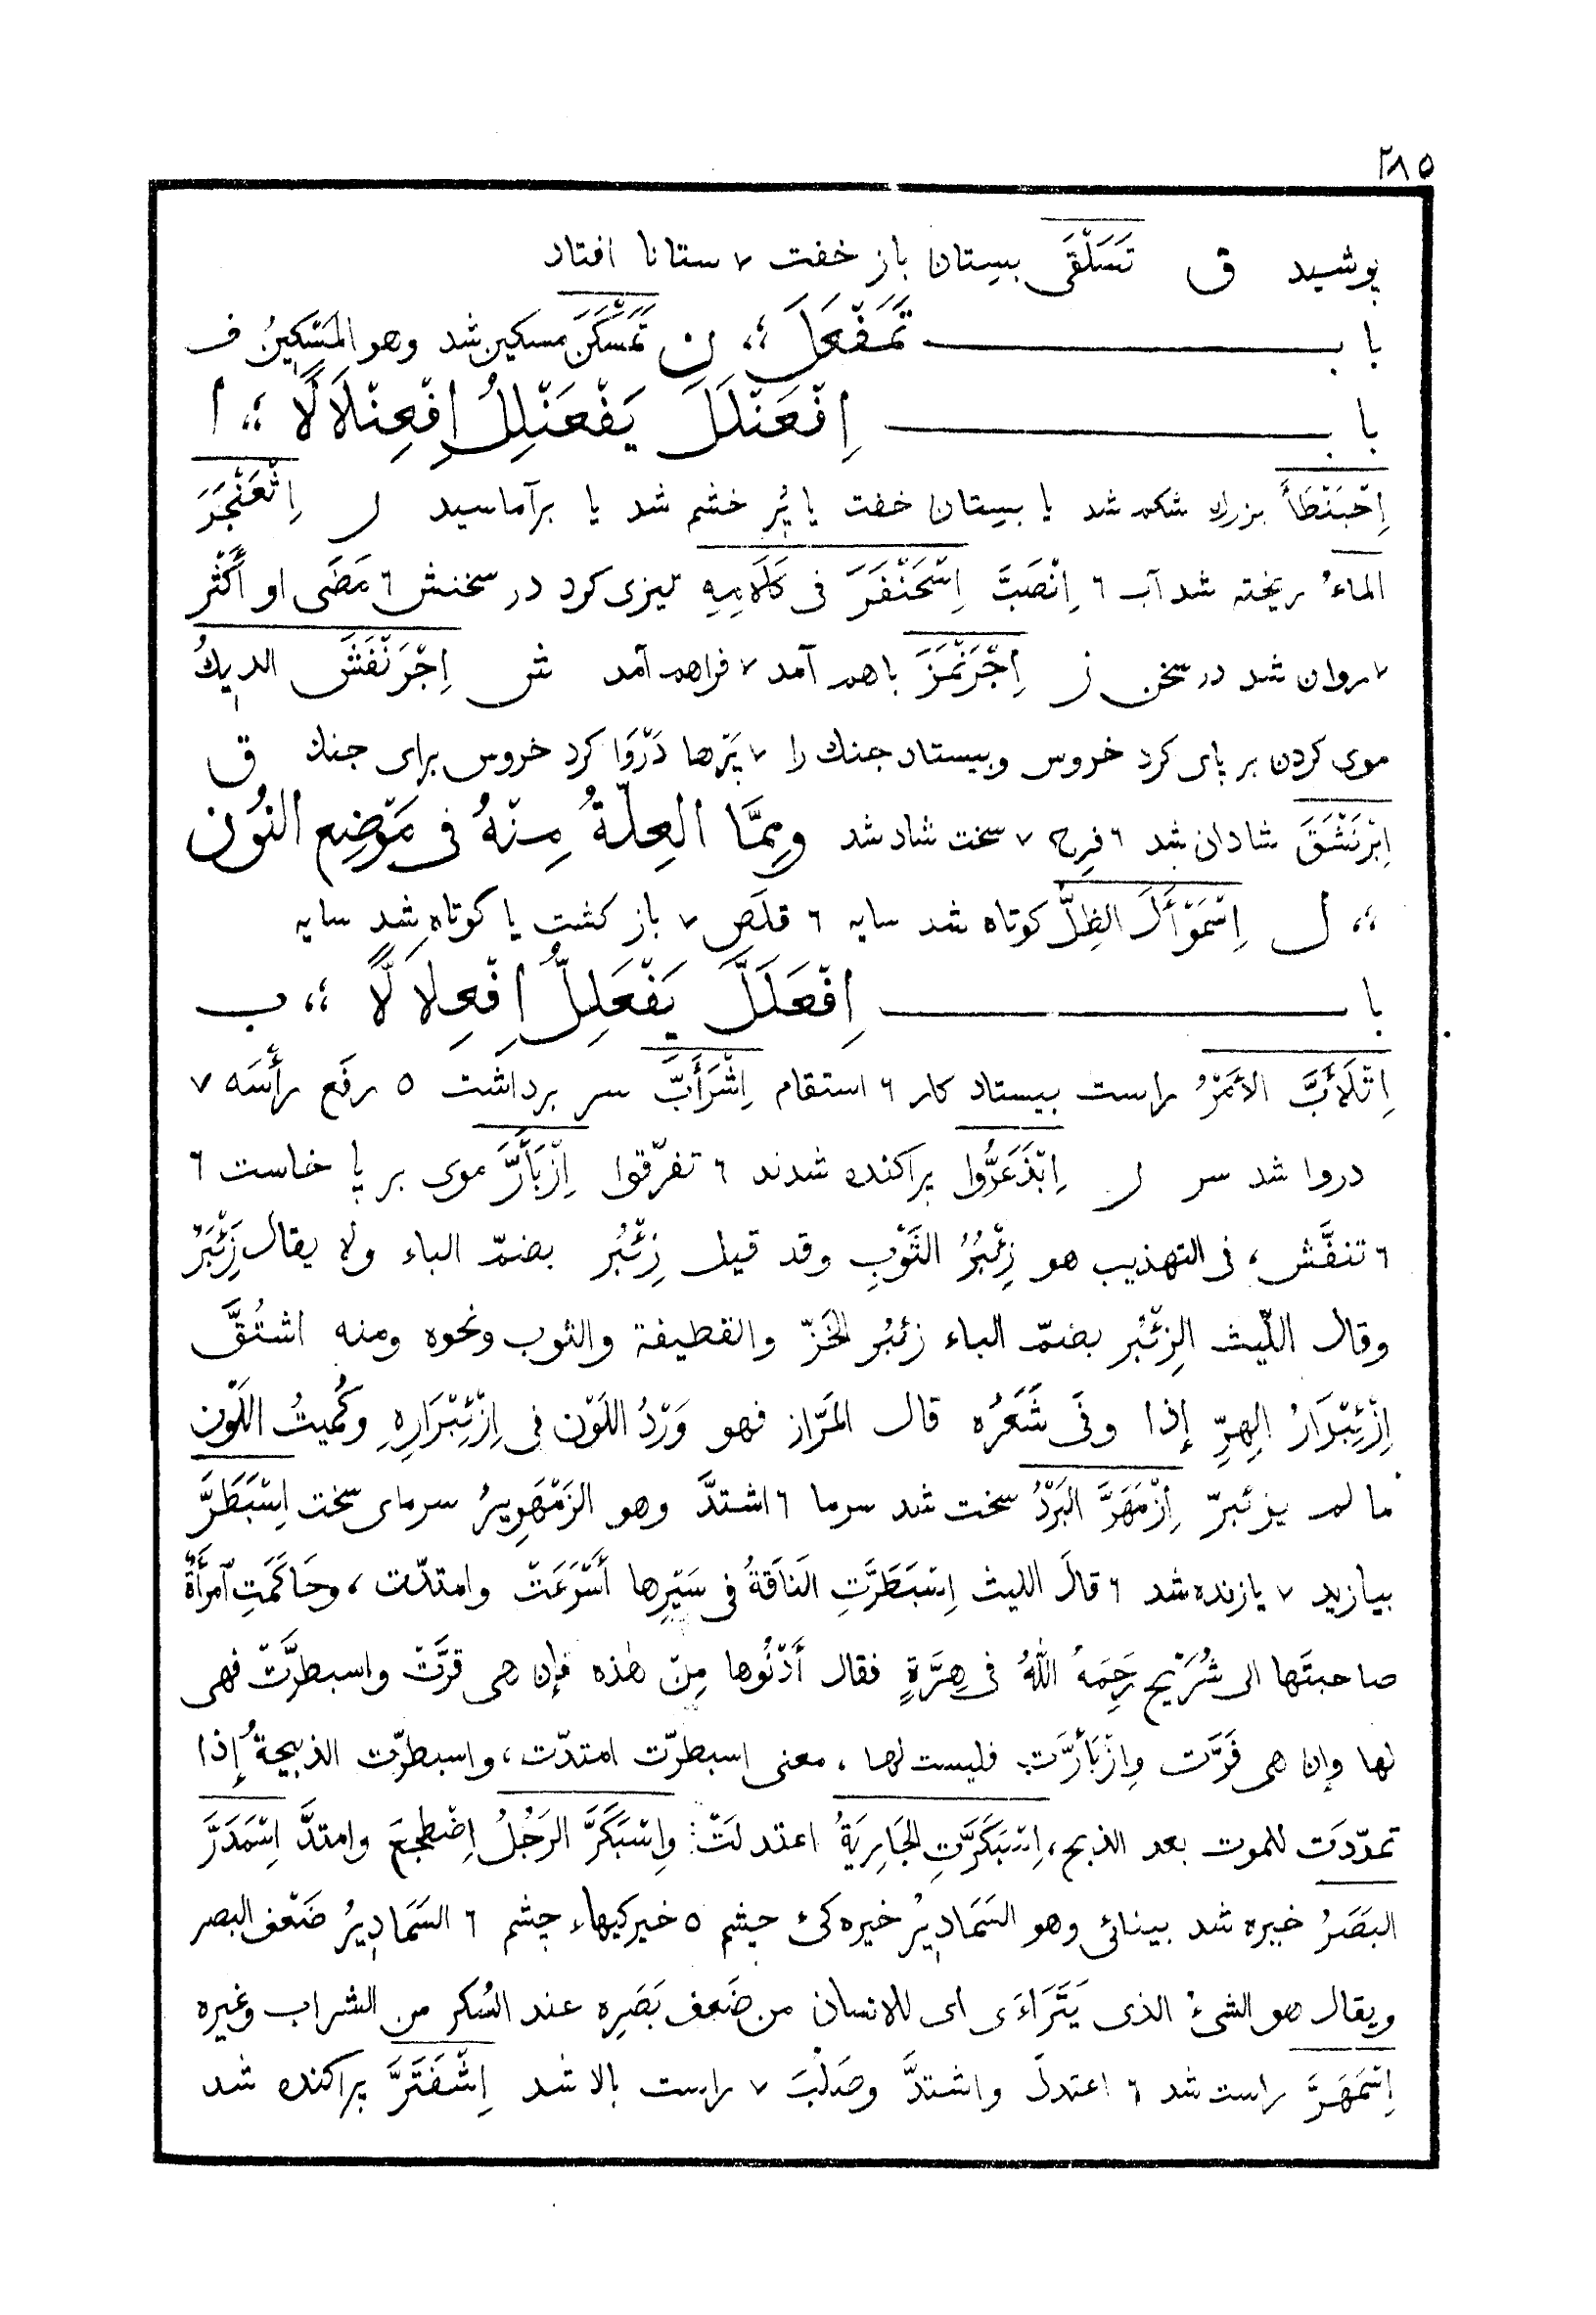 ۲۸۵
پوشید ق تَسَلْقَى بستان باز خفت ۷ ستانا افتاد
باب تَمَفْعَلَ ؛، ن تَمَسْكَنَ مسکین شد وهو المَسْكِينُ ف
باب اِفْعَنْلَلَ يَفْعَنْلِلُ اِفْعِنْلَالًا ؛، ا
اِحْبَنْطَأَ بزرك شكم شد یا بستان خفت یا پُر خشم شد یا برآماسید ر اِثْعَنْجَرَ
الماءُ ریخته شد آب ٦ اِنْصَبَّ اِسْحَنْفَرَ فى كَلَامِهِ تیزی کرد در سخنش ٦ مَضَى او أَكْثَر
۷ روان شد در سخن ز اِجْرَنْمَزَ باهم آمد ۷ فراهم آمد ش اِجْرَنْفَشَ الديكُ
موى كردن بر پای کرد خروس وبیستاد جنك را ۷ پَرْها دَرْوَا کرد خروس برای جنك ق
اِبْرَنْشَقَ شادان شد ٦ فرِح ۷ سخت شاد شد ومِمَّا العِلّةُ مِنْهُ فى مَوْضِعِ النُون
؛، ل اِسْمَوْأَلَ الظِلُّ کوتاه شد سایه ٦ قلَص ۷ باز کشت یا کوتاه شد سایه
با اِفْعَلَلَّ يَفْعَلِلُّ اِفْعِلَالًّا ؛، ب
اِتْلَأَبَّ الأَمْرُ راست بیستاد کار ٦ استقام اِشْرَأَبَّ سر برداشت ٥ رفَع رأسَه ۷
دروا شد سر ر اِبْذَعَرُّوا پراکنده شدند ٦ تفرّقوا اِزْبَأَرَّ موی بر پا خاست ٦
٦ تنفَّش، فى التهذيب هو زِئْبِرُ الثَوْبِ وقد قيل زِئْبُر بضمّ الباء ولا يقال زِئْبَرُ
وقال اللّيث الزِئْبُر بضمّ الباء زئبُر الخَزّ والقطيفة والثوب ونحوه ومنه اشتُقَّ
اِزْئِبْرَارُ الهِرِّ إذا وفَى شَعَرُه قال المَرّاز فهو وَرْدُ اللَوْن فى اِزْئِبْرَارِهِ وكُمَيتُ اللَوْن
ما لم يزئبرّ اِزْمَهَرَّ البَرْدُ سخت شد سرما ٦ اشتدَّ وهو الزَمْهَرِيرُ سرمای سخت اِسْبَطَرَّ
بیازید ۷ یازنده شد ٦ قالَ الليث اِسْبَطَرَّتِ النَاقةُ فى سَيْرِها أَسْرَعَتْ وامتدّت، وحَاكَمَتِ ٱمرأَةٌ
صاحبتَها الى شُرَيْحٍ رَحِمَهُ اللّٰهُ فى هِرَّةٍ فقال أَدْنُوها مِنْ هٰذه فإن هى قرَّتْ واسبطرَّتْ فهى
لها وإن هى فَرَّت وازْبَأَرَّت فليست لها، معنى اسبطرّت امتدّت، واسبطرّت الذبيحةُ إذا
تمدّدَت للموت بعد الذبح، اِسْبَكَرَّتِ الجَارِيَةُ اعتدلَتْ: واِسْبَكَرَّ الرَجُلُ اِضْطجعَ وامتدَّ اِسْمَدَرَّ
البَصَرُ خیره شد بینائی وهو السَمَادِيرُ خیره کیٔ چشم ٥ خیرکیهاء چشم ٦ السَمَادِيرُ ضَعْف البصر
ويقال هو الشىءُ الذى يَتَرَاءَى اى للانسان من ضَعف بَصَرِه عند السُكر من الشراب وغيره
اِسْمَهَرَّ راست شد ٦ اعتدلَ واشتدَّ وصَلُبَ ۷ راست بالا شد اِشْفَتَرَّ پراکنده شد